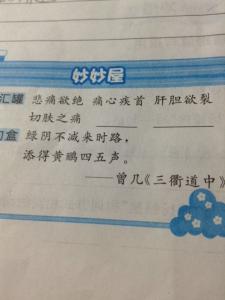 妙妙屋
汇罐 悲痛欲绝 痛心疾首 肝胆欲裂
切肤之痛
句盒 绿阴不减来时路，
添得黄鹂四五声。
——曾几《三衢道中》